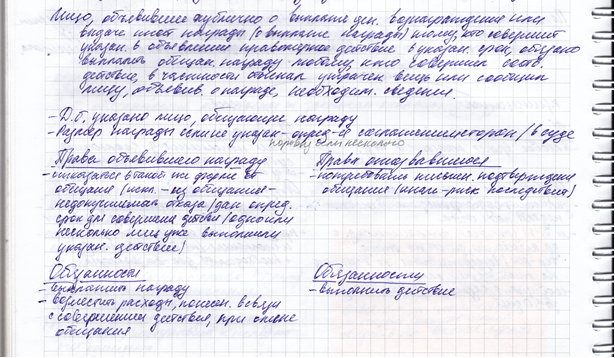 Лицо, объявившее публично о выплате ден. вознаграждения или
выдаче иной награды (о выплате награды) тому, кто совершит
указан. в объявлении правомерное действие в указан. срок, обязано
выплатить обещан. награду любому, кто совершил соотв.
действие, в частности отыскал утрачен. вещь или сообщил
лицу, объявив. о награде, необходим. сведения.
- Д.б. указано лицо, обещающее награду
- Размер награды если не указан - опред-ся соглашением сторон / в суде
поровну если несколько
Права объявившего награду
- отказаться в такой же форме от
обещания (искл. - из обещания -
недопустимость отказа / дан опред.
срок для совершения действия / одно или
несколько лиц уже выполнили
указан. действие)
Права отозвавшегося
- потребовать письмен. подтверждения
обещания (иначе - риск последствий)
Обязанности
- выплатить награду
- возместить расходы, понесен. в связи
с совершением действия, при отмене
обещания
Обязанности
- выполнить действие